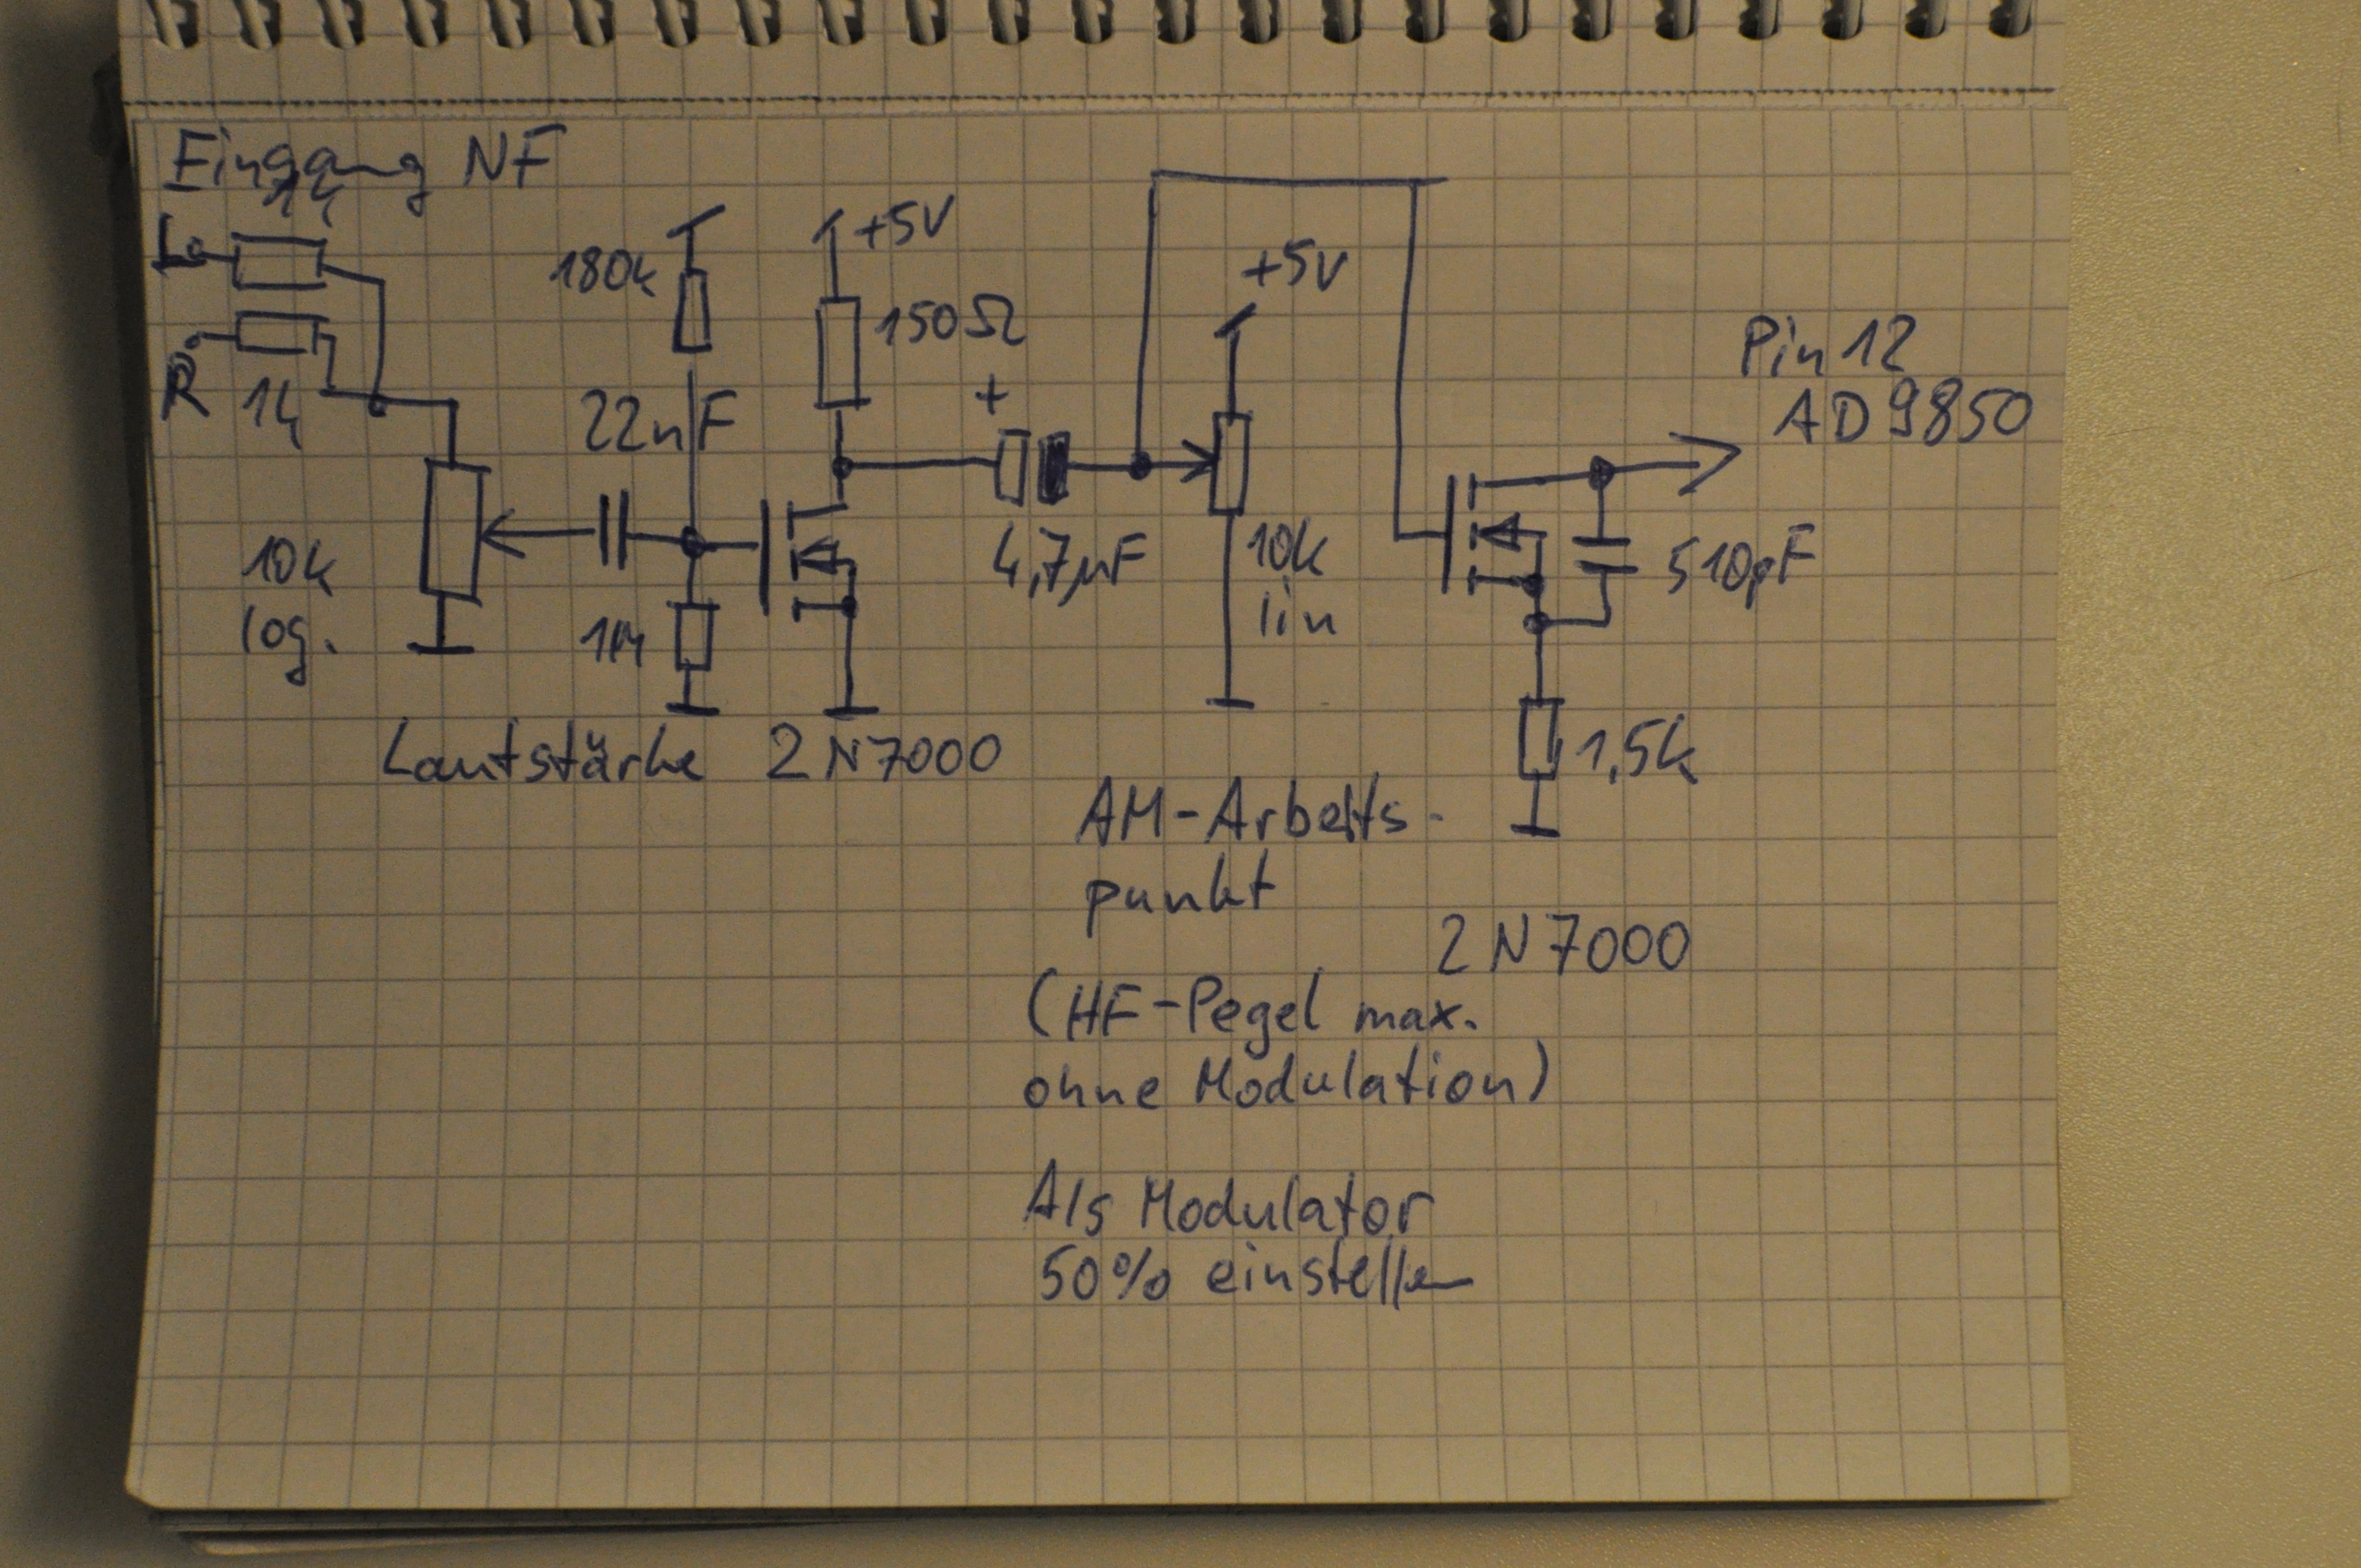 Eingang NF
1k
L
R
1k
10k
log.
180k
22nF
1M
Lautstärke
+5V
150Ω
2N7000
+
4,7µF
+5V
10k
lin
AM-Arbeits-
punkt
(HF-Pegel max.
ohne Modulation)
Als Modulator
50% einstellen
Pin 12
AD9850
510pF
1,5k
2N7000